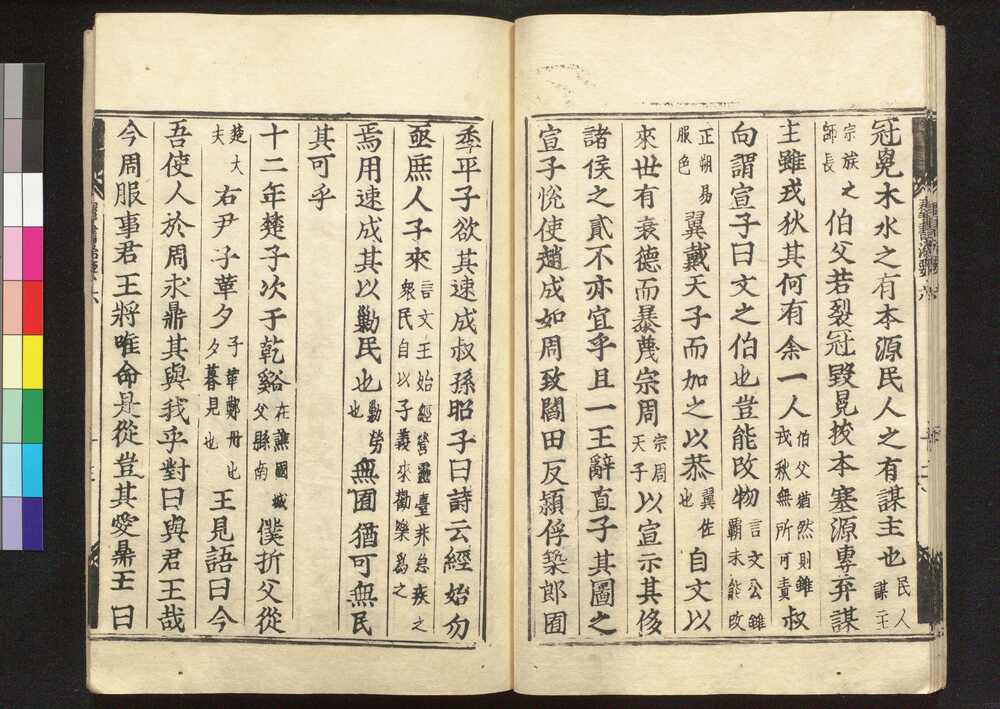 冠冕木水之有本源民人之有謀主也民人謀主
宗族之師長伯父若裂冠毀冕拔本塞源專弃謀
主雖戎狄其何有余一人伯父猶然則雖戎狄無所可責叔
向謂宣子曰文之伯也豈能改物言文公雖霸未能改
正朔易服色翼戴天子而加之以恭翼佐也自文以
來世有衰德而暴蔑宗周宗周天子以宣示其侈
諸侯之貳不亦宜乎且一王辭直子其圖之
宣子悅使趙成如周致閻田反潁俘築郎囿
季平子欲其速成叔孫昭子曰詩云經始勿
亟庶人子來言文王始經營靈臺非急疾之衆民自以子義來勸樂爲之
焉用速成其以勦民也勦勞也無囿猶可無民
其可乎
十二年楚子次于乾谿在譙國城父縣南僕折父從
楚大夫右尹子革夕子革鄭丹也夕暮見也王見語曰今
吾使人於周求鼎其與我乎對曰與君王哉
今周服事君王將唯命是從豈其愛鼎王曰